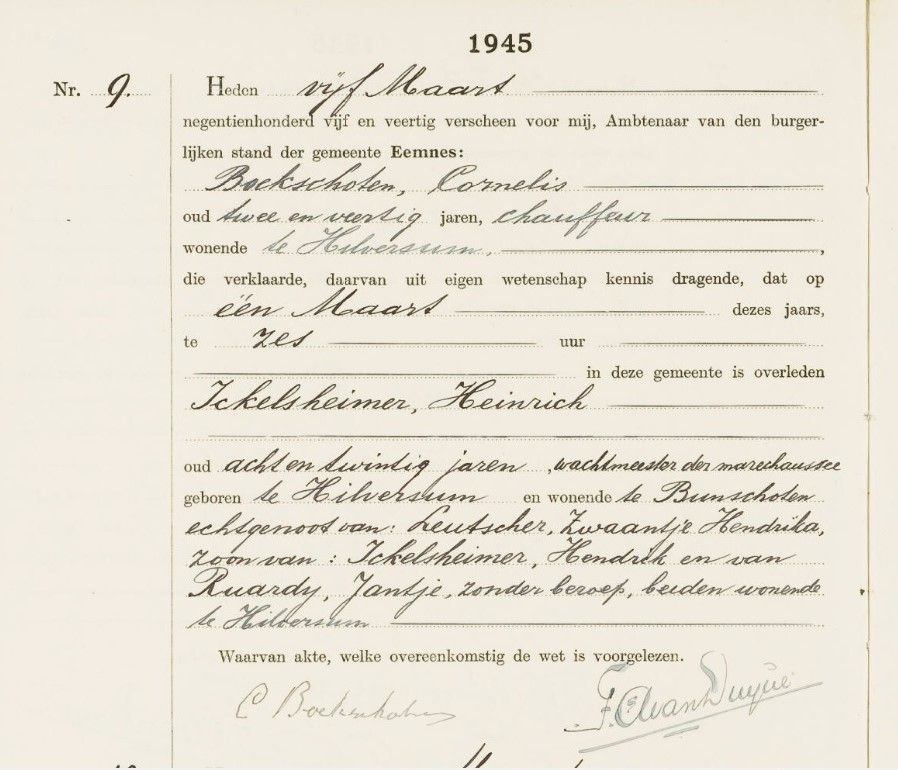 1945
Nr. 9. Heden vijf Maart
negentienhonderd vijf en veertig verscheen voor mij, Ambtenaar van den burger-
lijken stand der gemeente Eemnes:
Bockschoten, Cornelis
oud twee en veertig jaren, chauffeur
wonende te Hilversum,
die verklaarde, daarvan uit eigen wetenschap kennis dragende, dat op
één Maart dezes jaars,
te zes uur
in deze gemeente is overleden
Ickelsheimer, Heinrich
oud acht en twintig jaren, wachtmeester der marechaussee
geboren te Hilversum en wonende te Bunschoten
echtgenoot van: Leutscher, Zwaantje Hendrika,
zoon van: Ickelsheimer, Hendrik en van
Ruardy, Jantje, zonder beroep, beiden wonende
te Hilversum
Waarvan akte, welke overeenkomstig de wet is voorgelezen.
C